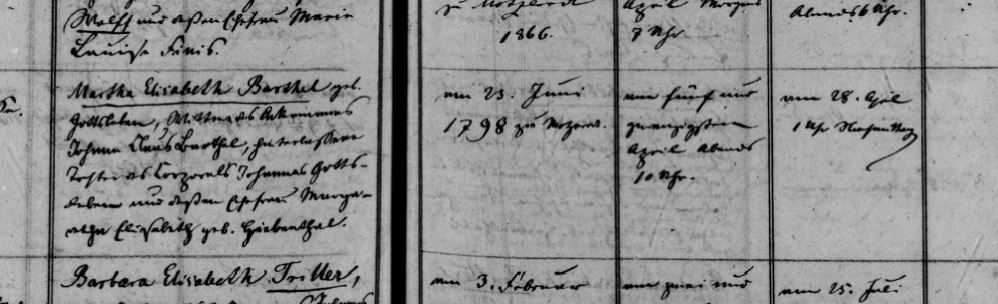 Wolff und dessen Ehefrau Marie
Louise Finis.
1866.
April Morgens
7 Uhr
Abends 6 Uhr.
Martha Elisabeth Barthel geb.
Gottsleben, Wittwe des Ackermanns
Johann Claus Barthel, hinterlassene
Tochter des Corporals Johannes Gotts-
leben und dessen Ehefrau Marga-
retha Elisabeth geb. Giebenthal.
am 23. Juni
1798 zu
am fünf und
zwanzigsten
April Abends
10 Uhr.
am 28. April
1 Uhr Nachmittag
Barbara Elisabeth Triller,
am 3. Februar
am zwei und
am 25. Juli